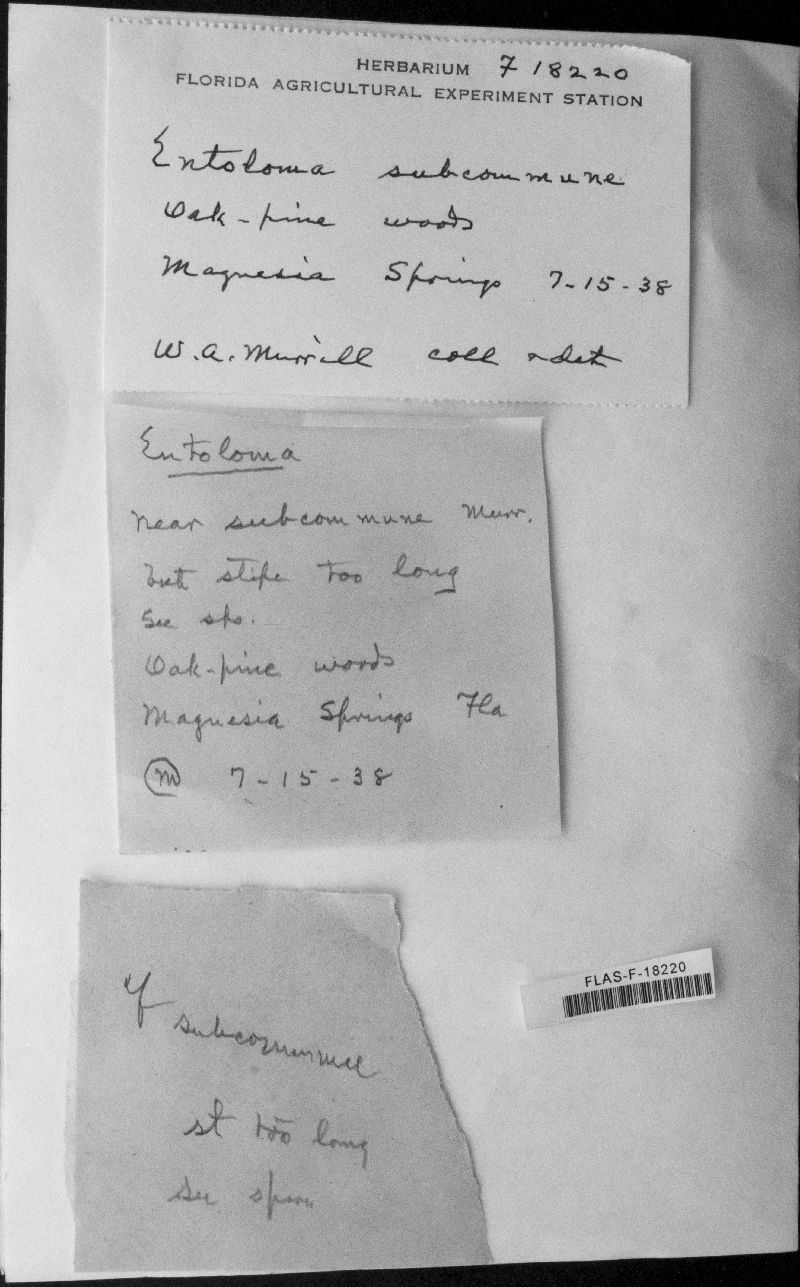 HERBARIUM F 18220
FLORIDA AGRICULTURAL EXPERIMENT STATION
Entoloma subcommune
Oak-pine woods
Magnesia Springs 7-15-38
W.A. Murrill coll & det
Entoloma
near subcommune Murr.
but stipe too long
See sps.
Oak-pine woods
Magnesia Springs Fla
M 7-15-38
FLAS-F-18220
cf
subcommune
st too long
See spores